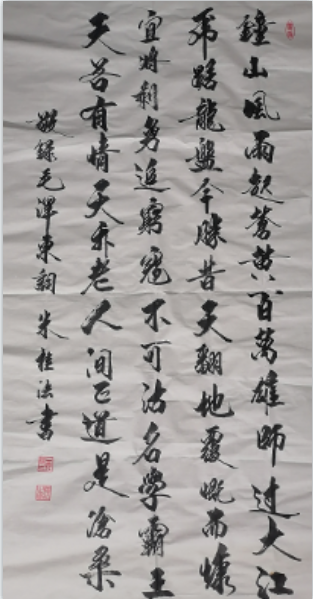 鐘山風雨起蒼黄百萬雄師过大江
虎踞龍盤今勝昔天翻地覆慨而慷
宜將剩勇追窮寇不可沽名學霸王
天若有情天亦老人间正道是滄桑
敬録毛澤東詞 朱桂法書